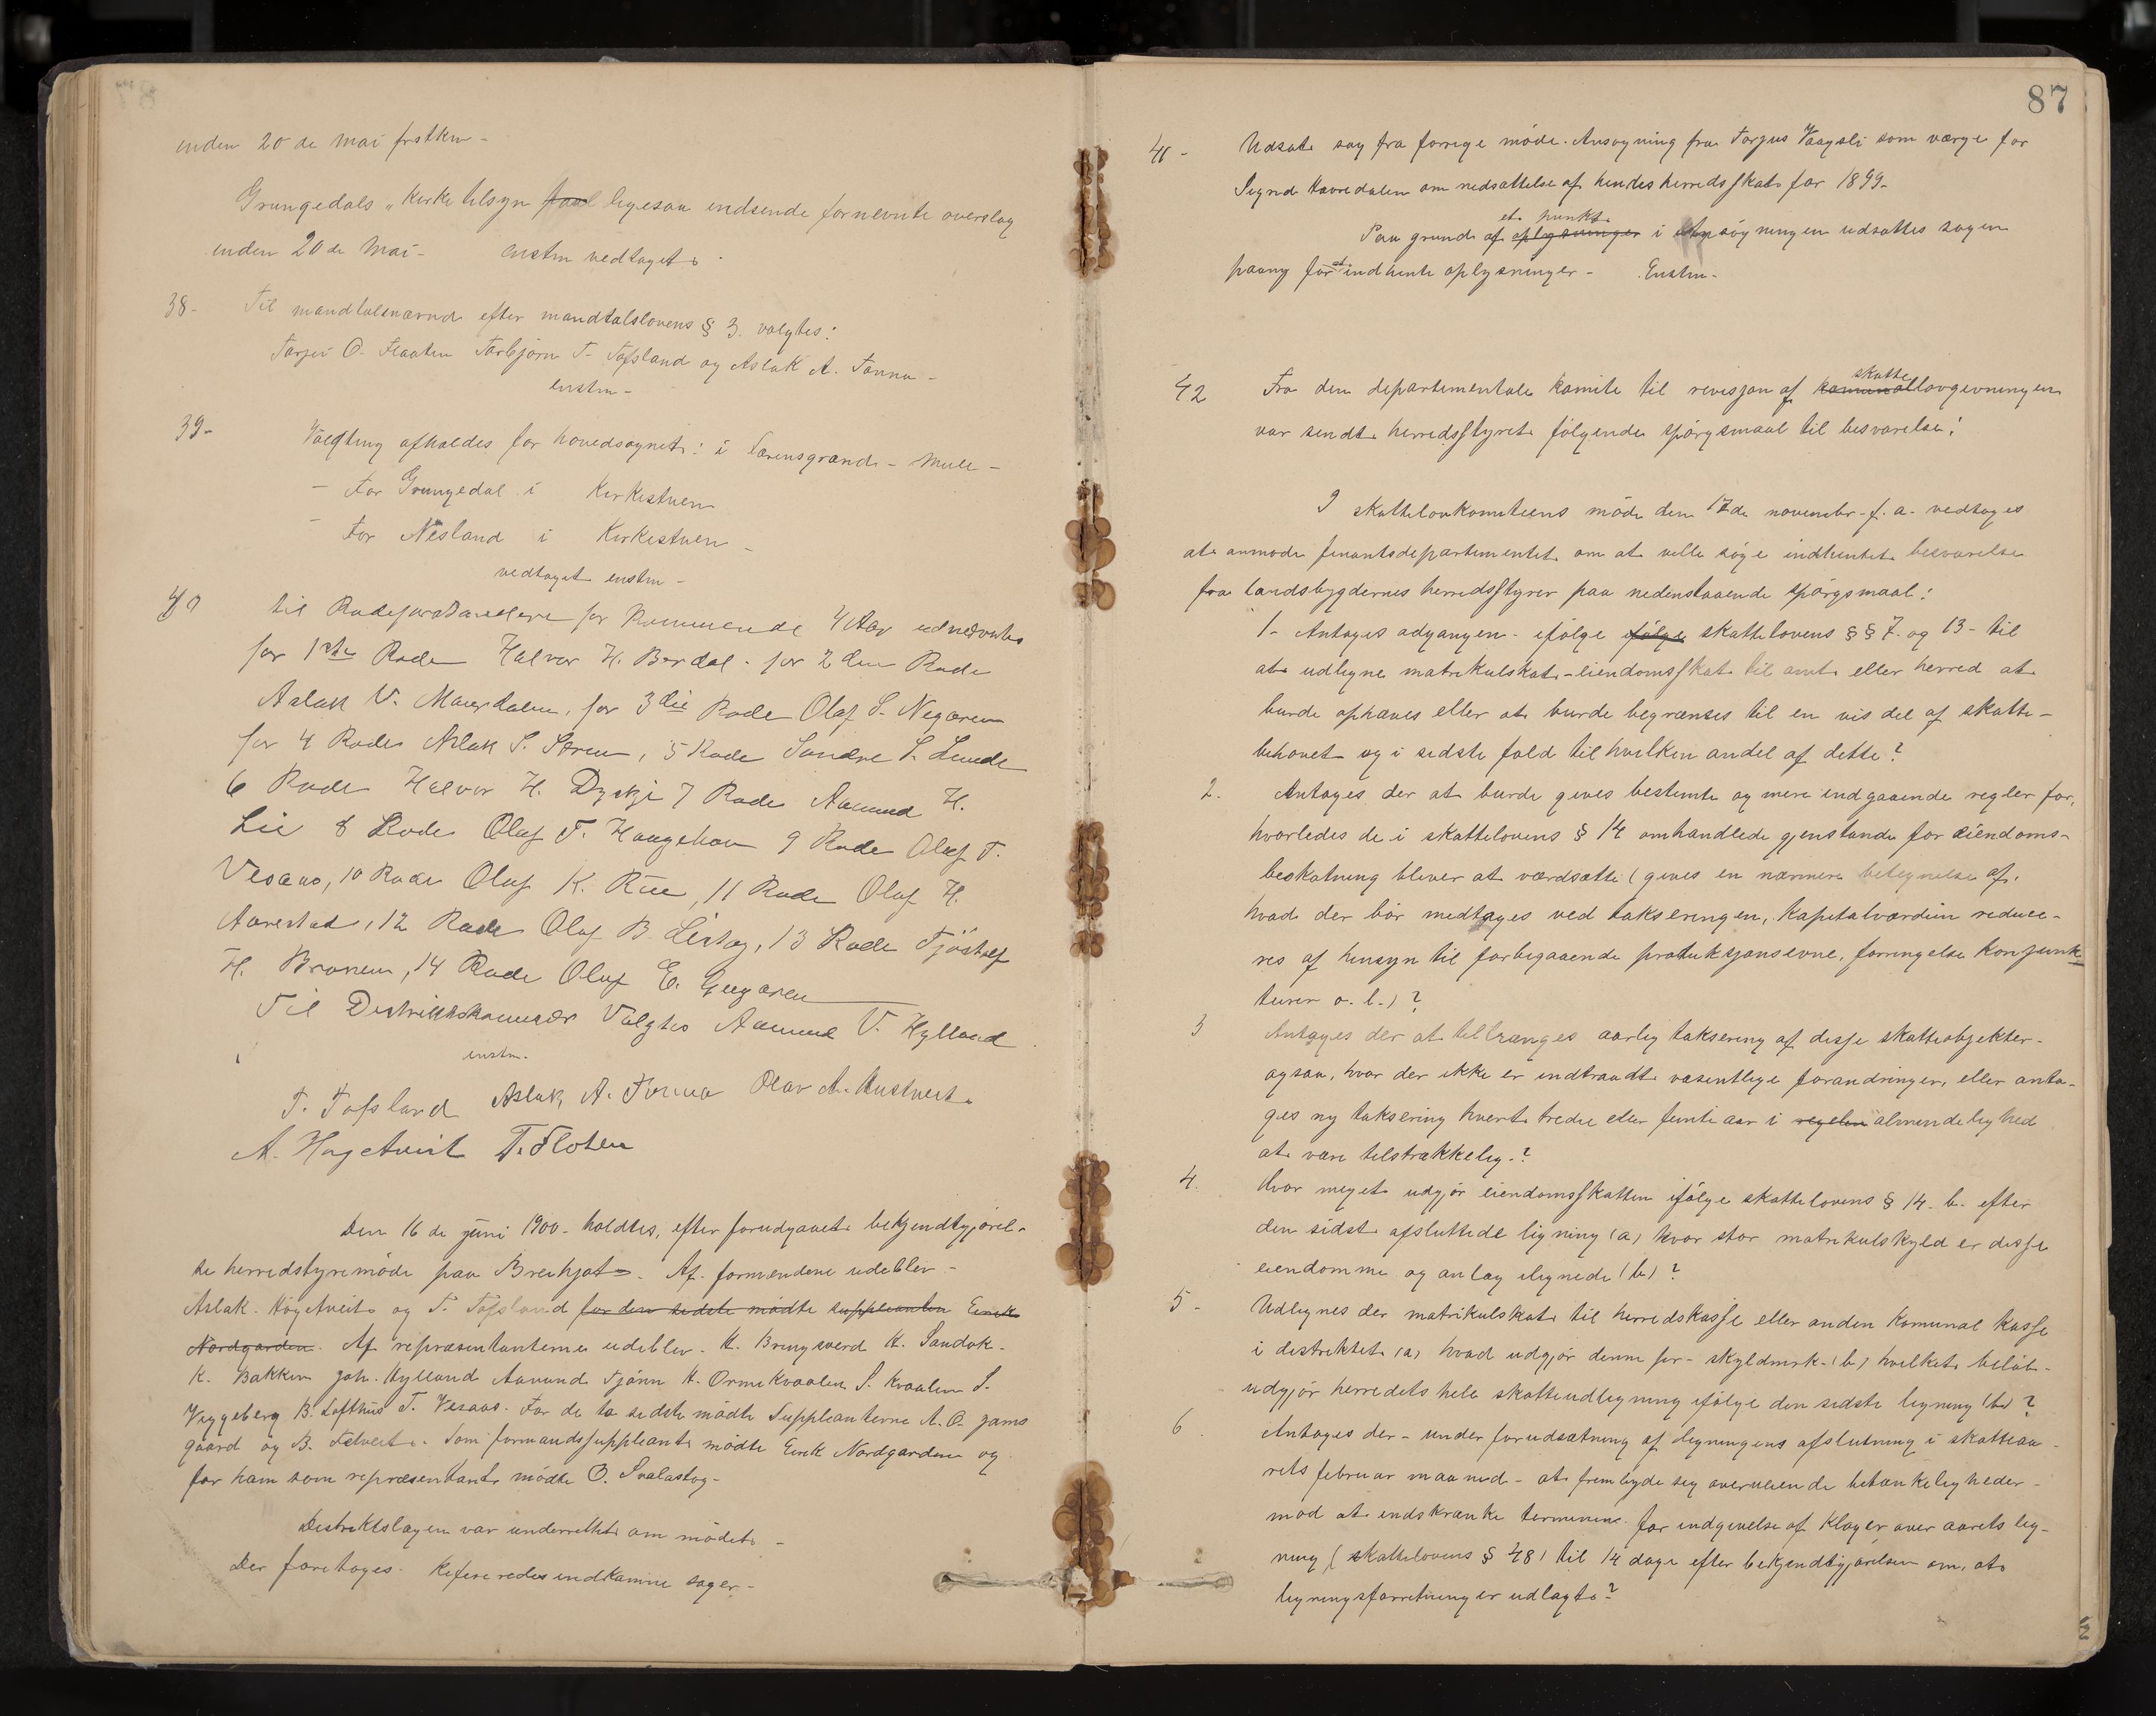 inden 20 de mai frstkm -
Grungedals " kirketilsyn paal ligesaa indsende fornevnte overslag
inden 20 de mai - enstm vedtaget.
38- Til mandtalsnævnd efter mandtalslovens § 3. valgtes:
Tarjei O. Flaaten Torbjørn T. Tofsland og Aslak A. Tonna -
enstm -
39- Valgting afholdes for hovedsognet: i Særensgrænd - Mule -
- For Grungedal i Kirkestuen
- For Nesland i Kirkestuen -
vedtaget enstm -
40 til Rodeforstandere for kommende 4 Aar udnævntes
for 1ste Rode Halvor H. Berdal. for 2den Rode
Aslak V. , for 3die Rode Olaf S. Negaren
for 4 Rode Aslak S. , 5 Rode Sondre S. Lunde
6 Rode Halvor H. Dyrkje 7 Rode Aamund H.
Lie 8 Rode Olaf T. Haugehov 9 Rode Olaf T.
Vesaas, 10 Rode Olaf K. Rue, 11 Rode Olaf H.
Aarestad, 12 Rode Olaf B. , 13 Rode Tjöstolf
H. , 14 Rode Olaf E.
Til Distriktskommisær Valgtes Aamund V. Hylland
enstm.
T. Tofsland Aslak A. Tonna Olav A.
A. Høgetveit T. Floten
Den 16 de juni 1900. holdtes, efter forudgaaet bekjendtgjörel-
se herredstyremöde paa . Af formendene udeblev -
Aslak. Høgetveit og T. Tofsland for den sidste mødte suppleanten Eirik
Nordgarden. Af repræsentanterne udeblev. H. Bringsverd H. Sandok-
K. Bakken Joh. Hylland Aamund Tjönn H. Ormekvaalen S. Kvaalen S.
Veggeberg B. Lofthus T. Vesaas. For de to sidste mødte Suppleanterne A. O. Jams
gaard og B. . Som formandssuppleant mødte Eirik Nordgarden og
for ham som repræsentant mødte O. Svalastog-
Distriktslægen var underrettet om mødet -
Der foretoges. Refereredes indkomne sager -
87
41- Udsat sag fra forrige møde. Ansøgning fra Torjus Vaagsli som værge for
Signe Havredalen om nedsættelse af hendes herredsskat for 1899-
et punkt
Paa grund af oplysninger i ansøgningen udsattes sagen
paany for at indhente oplysninger - Enstm-
skatte
42 Fra den departementale komite til revisjon af komunallovgevningen
var sendt herredsstyret følgende spörgsmaal til besvarelse:
I skattelovkomiteens møde den 17de novembr. f. a. vedtoges
at anmode finantsdepartementet om at ville søge indhentet besvarelse
fra landsbygdernes herredsstyrer paa nedenstaaende spörgsmaal:
1- Antages adgangen - ifølge ifølge skattelovens §§ 7. og 13- til
at udligne matrikulskat - eiendomsskat til amt eller herred at
burde ophæves eller at burde begrænses til en vis del af skatte-
behovet og i sidste fald til hvilken andel af dette?
2. Antages der at burde gives bestemte og mere indgaaende regler for,
hvorledes de i skattelovens § 14 omhandlede gjenstande for eiendoms-
beskatning bliver at værdsætte (gives en nærmere betegnelse af.
hvad der bör medtages ved takseringen, kapitalværdien reduce-
res af hensyn til forbigaaende produksjonsevne, forringelse konjunk-
turer o. l.) ?
3 Antages der at tiltrænges aarlig taksering af disse skatteobjekter-
ogsaa, hvor der ikke er indtraadt væsentlige forandringer, eller anta-
ges ny taksering hvert tredie eller femte aar i regelen almindelighed
at være tilstrækkelig.?
4. Hvor meget udgjör eiendomsskatten ifølge skattelovens § 14. b. efter
den sidst afsluttede ligning (a) hvor stor matrikulskyld er disse
eiendomme og anlæg ilignede (b) ?
5- Udlignes der matrikulskat til herredskasse eller anden komunal kasse
i distriktet (a) hvad udgjör denne pr- skyldmrk- (b) hvilket belöb-
udgjör herredets hele skatteudligning ifølge den sidste ligning (b) ?
6 Antages der - under forudsætning af ligningens afslutning i skatteaa-
rets februar maaned - at frembyde sig overveiende betænkeligheder-
mod at indskrænke terminene for indgivelse af klager over aarets lig-
ning (skattelovens § 48) til 14 dage efter bekjendtgjørelsen om, at
ligningsforretning er udlagt?